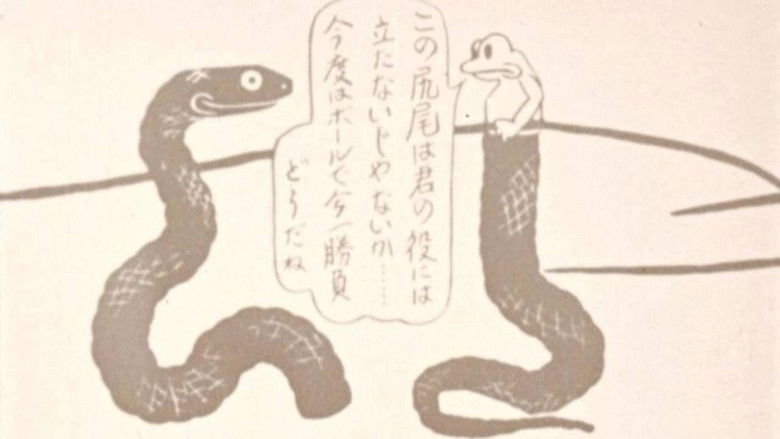 この尻尾は君の役には
立たないじやないか……
今度はボールで今一勝負
どうだね